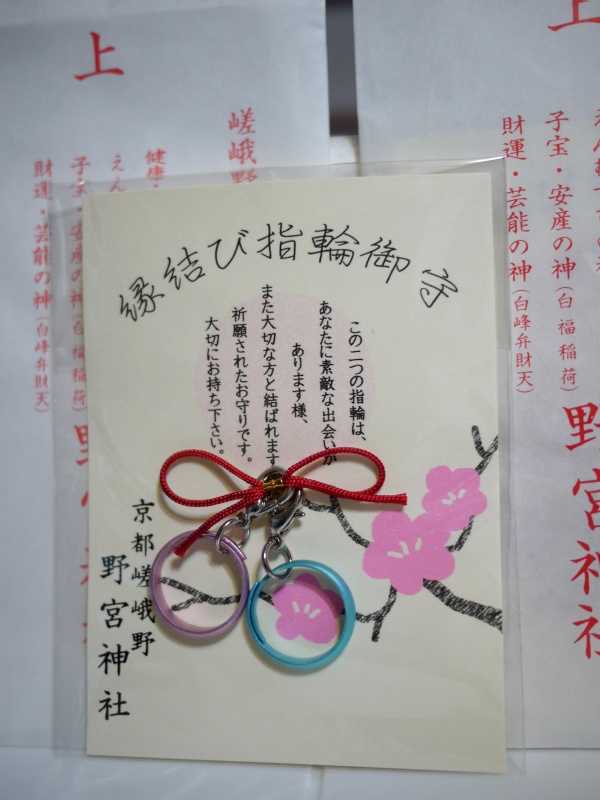 縁結び指輪御守
この二つの指輪は、
あなたに素敵な出会いが
あります様、
また大切な方と結ばれます
祈願されたお守りです。
大切にお持ち下さい。
京都嵯峨野
野宮神社
上
嵯峨野
健康・
えん
子宝・安産の神(白福稲荷)
財運・芸能の神(白峰弁財天)
上
子宝・安産の神(白福稲荷)
財運・芸能の神(白峰弁財天)
野宮神社